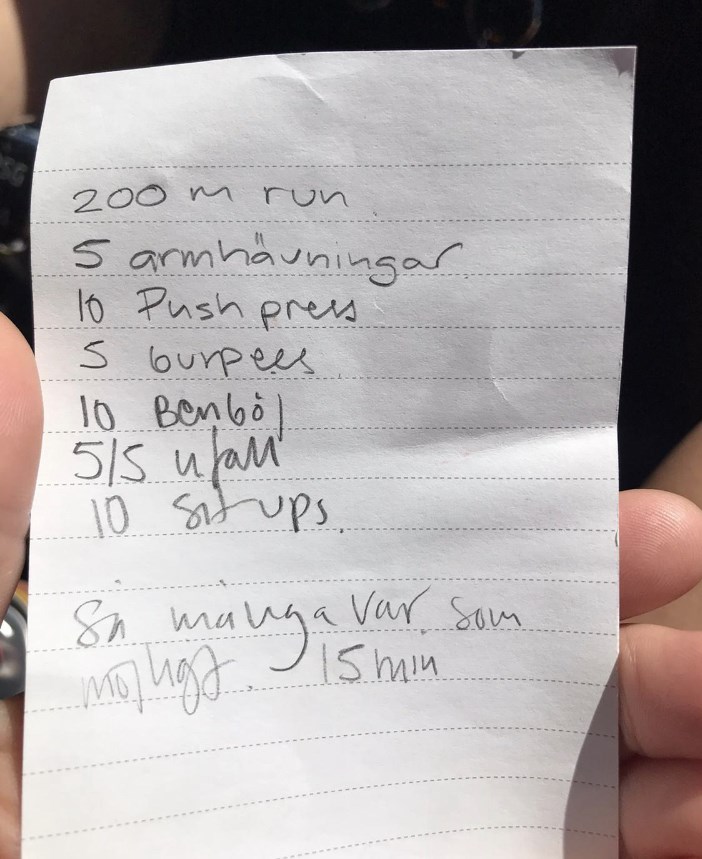 200 m run
5 armhävningar
10 Push press
5 burpees
10 Benböj
5/5 utfall
10 Sit-ups.
Så många var som
möjligt. 15 min